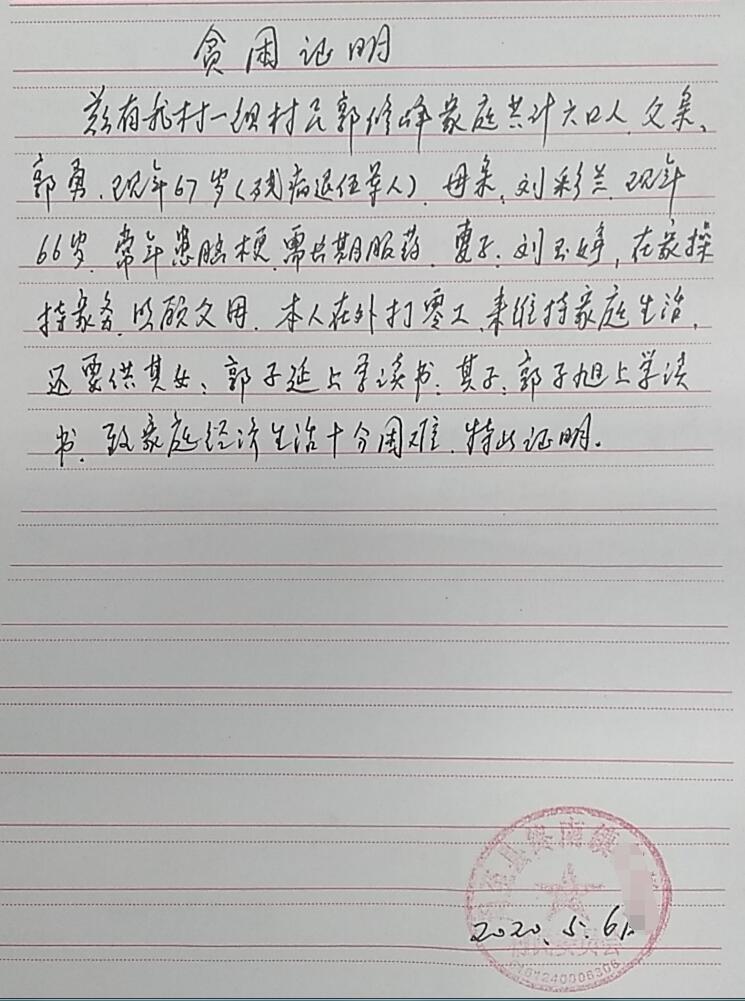 贫困证明
兹有我村一组村民郭修峰家庭共计六口人.父亲、
郭勇.现年67岁(残病退伍军人).母亲:刘彩兰.现年
66岁.常年患脑梗.需长期服药.妻子.刘玉婷,在家操
持家务.照顾父母.本人在外打零工.来维持家庭生活.
还要供其女:郭子延上学读书.其子:郭子旭上学读
书.致家庭经济生活十分困难.特此证明.
县终南镇
2020.5.6
村民委员会
6101240006306